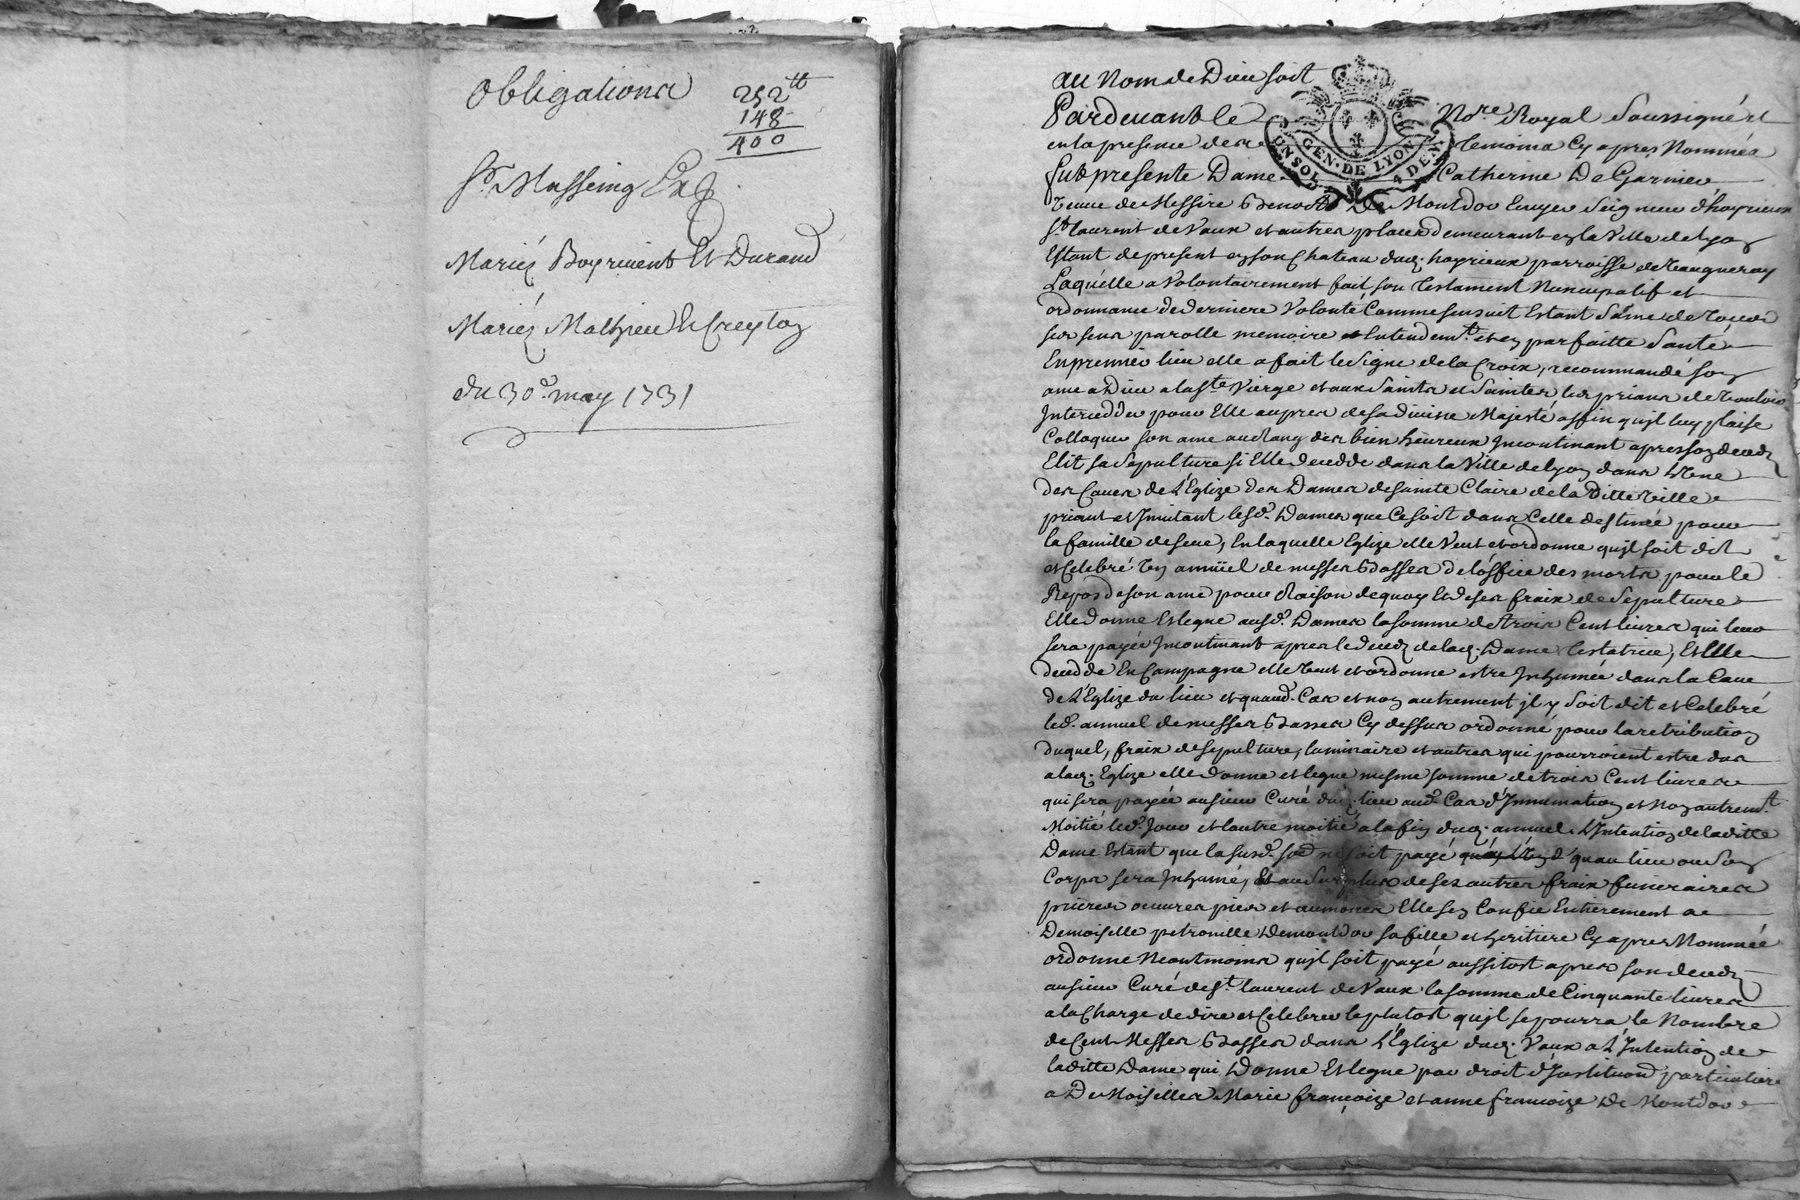 Obligations
252tt
148
400
Sr. Masseing
Mariez Boyrivent Et Durand
Mariez Mathieu Et Creyton
du 30e. may 1731
au Nom de Dieu soit
Pardevant le Nore. Royal Soussigné et
en la presence des Temoins Cy apres Nommés
GEN. DE LYON
UN SOL 4 DEN.
fut presente Dame Catherine De Garnier
veuve de Messire De Montdor Ecuyer Seigneur d'hoyrieux
St. laurent de Vaux et autres places demeurant en la Ville de Lyon
Estant de present en son Chateau dud. hoyrieux parroisse de Vaugneray
Laquelle a Volontairement fait son testament Nuncupatif et
ordonnance de derniere Volonté Comme sensuit Estant Saine de tous
ses sens parolle memoire et Entendemt. et en parfaitte Santé
En premier lieu elle a fait le Signe de la Croix, recommandé son
ame a Dieu a la ste Vierge et aux Saints et Saintes les priant de vouloir
Interceder pour Elle aupres de sa divine Majesté affin qu'il luy plaise
Colloquer son ame au Rang des bien heureux Incontinant apres son deceds
Elit sa Sepulture si Elle decedde dans la Ville de Lyon dans L'une
des Caves de L'Eglize des Dames de sainte Claire de la ditte Ville
priant et Invitant lesd. Dames que Ce soit dans Celle destinée pour
la famille de seve, En laquelle Eglize elle Veut et ordonne qu'il soit dit
et Celebré Un annüel de messes basses de l'office des morts pour le
Repos de son ame pour Raison de quoy Et de ses fraix de Sepulture
Elle donne Et legue ausd. Dames la somme de trois Cent livres qui leur
sera payée Incontinant apres le deceds de lad. Dame testatrice, Et si Elle
decedde En Campagne elle veut et ordonne estre Inhumée dans la Cave
de L'Eglize du lieu et quaud. Cas et non autrement il y soit dit et Celebré
led. annuel de messes basses Cy dessus ordonné pour la retribution
duquel, fraix de sepulture, luminaire et autres qui pourroient estre dus
a lad. Eglize elle donne et legue mesme somme de trois Cent livres
qui sera payée au sieur Curé dud. lieu aud. Cas d'Innumation et Non autremt.
Moitié led. Jour et l'autre moitié a la fin dud. annuel L'Intention de laditte
Dame Estant que la susd. soit payé qu'au lieu ou Son
Corps sera Inhumé, Et au Surplus de ses autres fraix funeraires
prieres oeuvres pies et aumones Elle s'en Confie Entierement a
Demoiselle petronille Demontdor sa fille et heritiere Cy apres Nommée
ordonne Neantmoins qu'il soit payé aussitost apres son deceds
au sieur Curé de St. laurent de Vaux la somme de Cinquante livres
a la Charge de dire et Celebrer le plutost qu'il se pourra le Nombre
de Cent Messes basses dans L'Eglize dud. Vaux a L'Intention de
laditte Dame qui Donne Et legue par droit d'Institution particuliere
a De Moiselles Marie françoize et anne françoize De Montdor